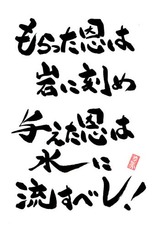 もらった恩は
岩に刻め
与えた恩は
水に
流すべし!